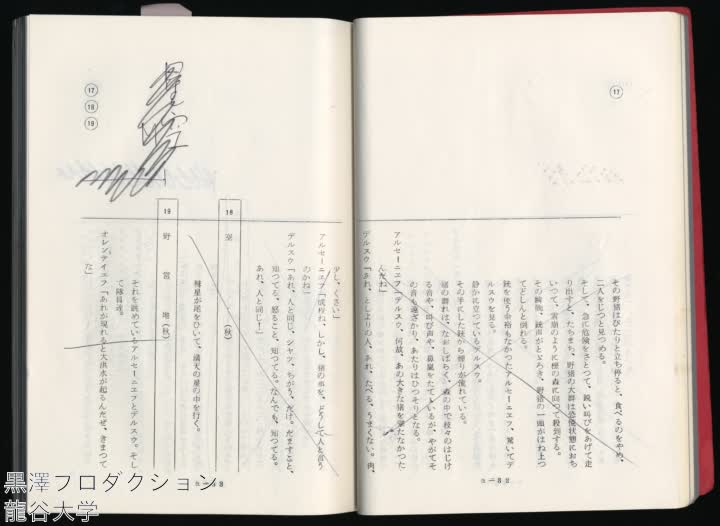 ⑰
その野猪はぴたりと立ち停ると、食べるのをやめ、
二人をじつと見つめる。
そして、急に危険をさとつて、鋭い叫びをあげて走
り出すと、たちまち、野猪の大群は恐慌状態におち
いつて、雪崩のように樫の森に向つて殺到する。
その瞬間、銃声がとゞろき、野猪の一頭がはね上つ
てどしんと倒れる。
銃を使う余裕もなかつたアルセーニエフ、驚いてデ
ルスウを見る。
静かに立つているデルスウ。
その手にした銃から煙りが流れている。
猪の群れは、なおしばらく、森の中で枝々のはじけ
る音や、叫び声や、鼻嵐をたてゝいるが、やがてそ
の音も遠ざかり、あたりはひつそりとなる。
アルセーニエフ「デルスウ、何故、あの大きな猪を撃たなかつた
んだね」
デルスウ「あれ、としよりの人、あれ、たべる、うまくない。肉、
⑰
⑱
⑲
少し、くさい」
アルセーニエフ「成程ね、しかし、猪の事を、どうして人と言う
のかね」
デルスウ「あれ、人と同じ、シャツ、ちがう、だけ。だますこと、
知つてる、怒ること、知つてる。なんでも、知つてる。
あれ、人と同じ！」
18 空 （秋）
彗星が尾をひいて、満天の星の中を行く。
19 野営地（秋）
それを眺めているアルセーニエフとデルスウ。そし
て隊員達。
オレンテイエフ「あれが現れると大洪水が起るんだぜ、きまつて
た」
黒澤プロダクション
龍谷大学